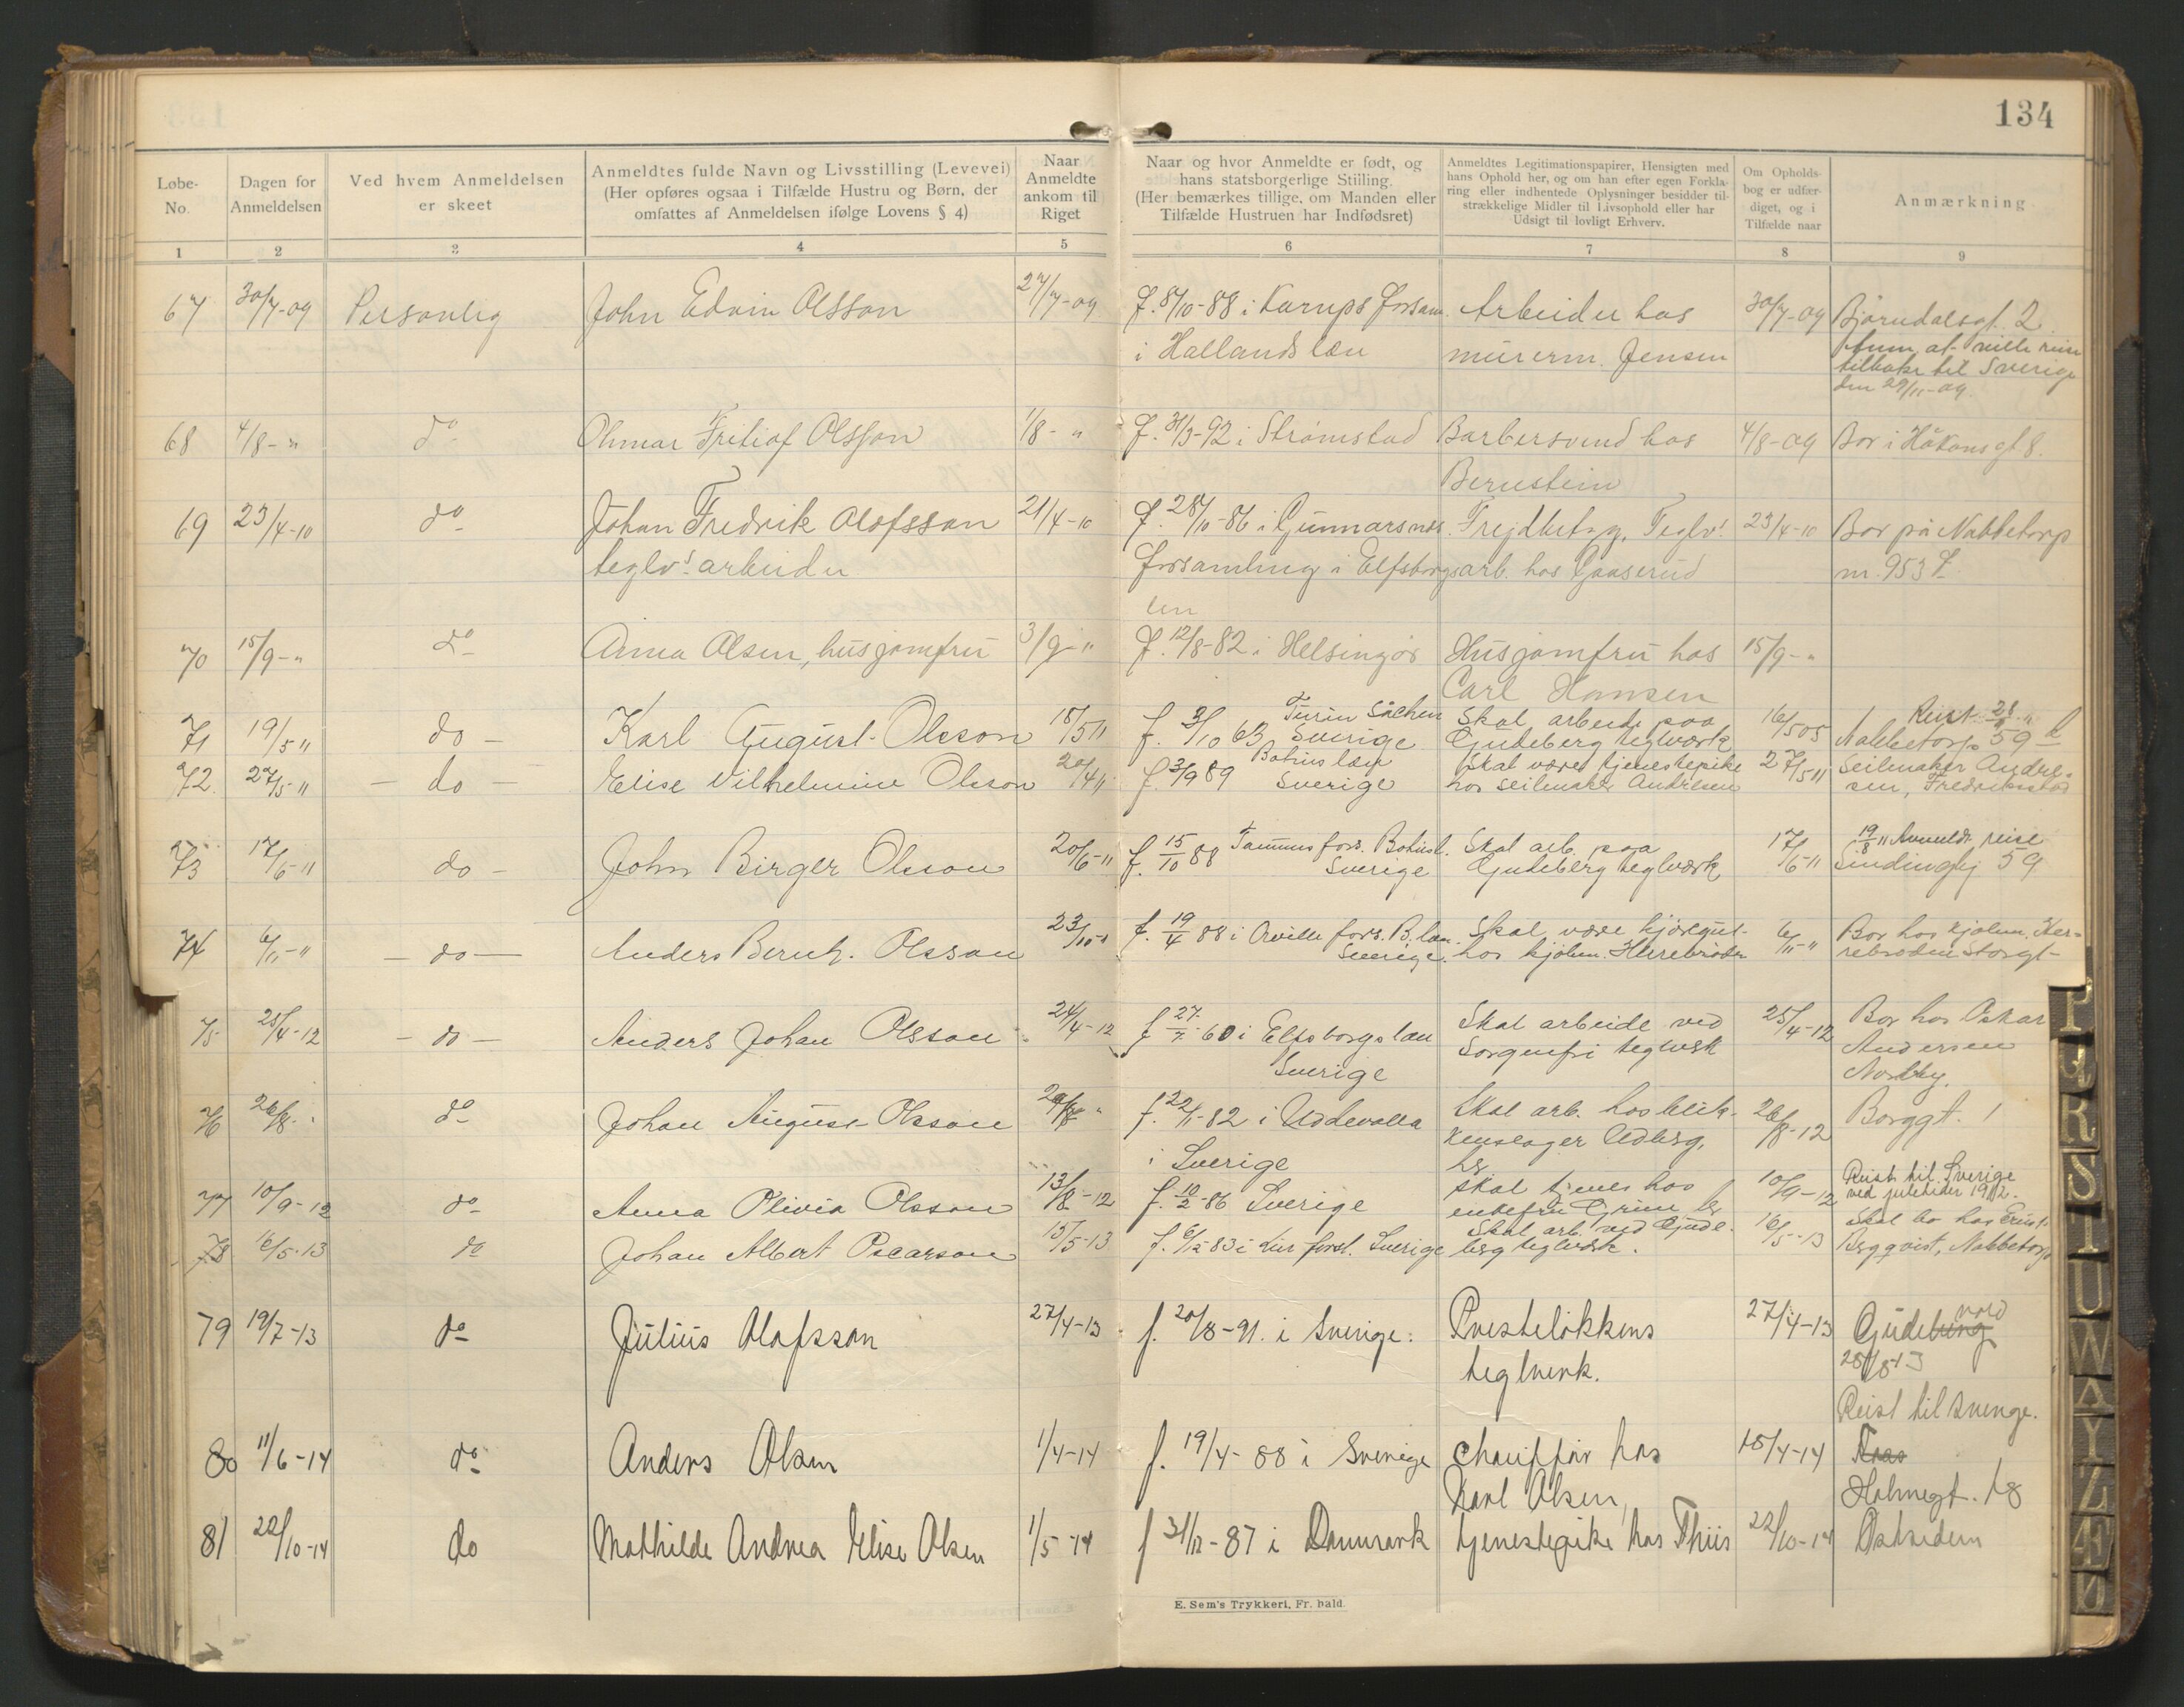 134
Løbe-No.
Dagen for Anmeldelsen
Ved hvem Anmeldelsen er skeet
Anmeldtes fulde Navn og Livsstilling (Levevei) (Her opføres ogsaa i Tilfælde Hustru og Børn, der omfattes af Anmeldelsen ifølge Lovens § 4)
Naar Anmeldte ankom til Riget
Naar og hvor Anmeldte er født, og hans statsborgerlige Stiiling. (Her bemærkes tillige, om Manden eller Tilfælde Hustruen har Indfødsret)
Anmeldtes Legitimationspapirer, Hensigten med hans Ophold her, og om han efter egen Forklaring eller indhentede Oplysninger besidder tilstrækkelige Midler til Livsophold eller har Udsigt til lovligt Erhverv.
Om Opholdsbog er udfærdiget, og i Tilfælde naar
Anmærkning
1 2 3 4 5 6 7 8 9
67 30/7-09 Personlig John Edvin Olsson 27/7-09 f. 8/10-88 i Karups forsam. Arbeider hos 30/7-09 Bjørndalsgt. 2.
i Hallands læn murerm. Jensen
at ville reise
tilbake til Sverige
den 29/11-09
68 4/8-" do Olmar Fritiof Olsson 1/8-" f. 31/3-92 i Strømstad Barbersvend hos 4/8-09 Bor i Håkonsgt 8.
Bernstein
69 23/4-10 do Johan Fredrik Olofsson 21/4-10 f. 28/10-86 i Gunnarsnes Frejdbetyg, Teglv. 23/4-10 Bor på Nabbetorp
teglvs. arbeider forsamling i Elfsborgs arb. hos Gaaserud nr. 953
len
70 15/9-" do Anna Olsen, husjomfru 3/9-" f. 12/8-82 i Helsingør Husjomfru hos 15/9-"
Carl Hansen
71 19/5 11 do - Karl August Olsson 18/5 11 f. 3/10 63 Sverige Skal arbeide paa
Gudeberg teglværk Nabbetorp 59
72. 27/5-11 - do - Elise Vilhelmine Olsson 20/4 11 f. 3/9 89 Bohus læn Sverige Skal være tjenestepike 27/5 11 Seilmaker Andre-
hos Seilmaker Andresen sen, Fredriksstad
73 17/6-11 do - John Birger Olsson f. 15/10 88 Tanums fors. Bohusl. Skal arb. paa 17/6-11 19/8 11 Anmeldt reise
Sverige Gudeberg teglværk 59
74 6/11-" - do - Anders Bernh. Olsson f. 19/4 88 i fors. B. læn. Skal være kjøregut 6/11-" Bor hos kjøbm. Her-
Sverige. hos kjøbm. Herrebrøden rebrøden Storgt-
75 25/4-12 - do - Anders Johan Olsson 24/4-12 f. 27/7-60 i Elfsborgs læn Skal arbeide ved 25/4-12 Bor hos Oskar
Sverige Sorgenfri teglverk Andersen
Norlby.
76 26/8-" do Johan August Olsson f. 22/1-82 i Uddevalla Skal arb. hos blik- 26/8-12 Borggt. 1
i Sverige kenslager
77 10/9-12 do Anna Olivia Olsson 13/8-12 f. 10/2-86 Sverige Skal tjenes hos 10/9-12 Reist til Sverige
enkefru Grim ved juletider 1912.
78 16/5-13 do Johan Albert Oscarson 15/5-13 f. 6/12-83 i fors. Sverige Skal arb. ved Gude- 16/5-13 Skal bo hos Ernst
berg teglverk. Bergqvist, Nabbetorp
79 19/7-13 do Julius Olofsson 27/4-13 f. 20/8-91. i Sverige. Presteløkkens 27/4-13 Gudeberg nord
teglverk. 25/8-13
Reist til Sverige.
80 11/6-14 do Anders Olsen 1/4-14 f. 19/4-88 i Sverige Chauffør hos 15/4-14
Karl Olsen, Holmegt. 18
81 22/10-14 do Mathilde Andrea Elise Olsen 1/5-14 f 31/12-87 i Danmark tjenestepike hos Thiis 22/10-14 Østsiden
E. Sem's Trykkeri, Fr. hald.
P
Q
R
S
T
U
W
A
Y
Z
Æ
Ø